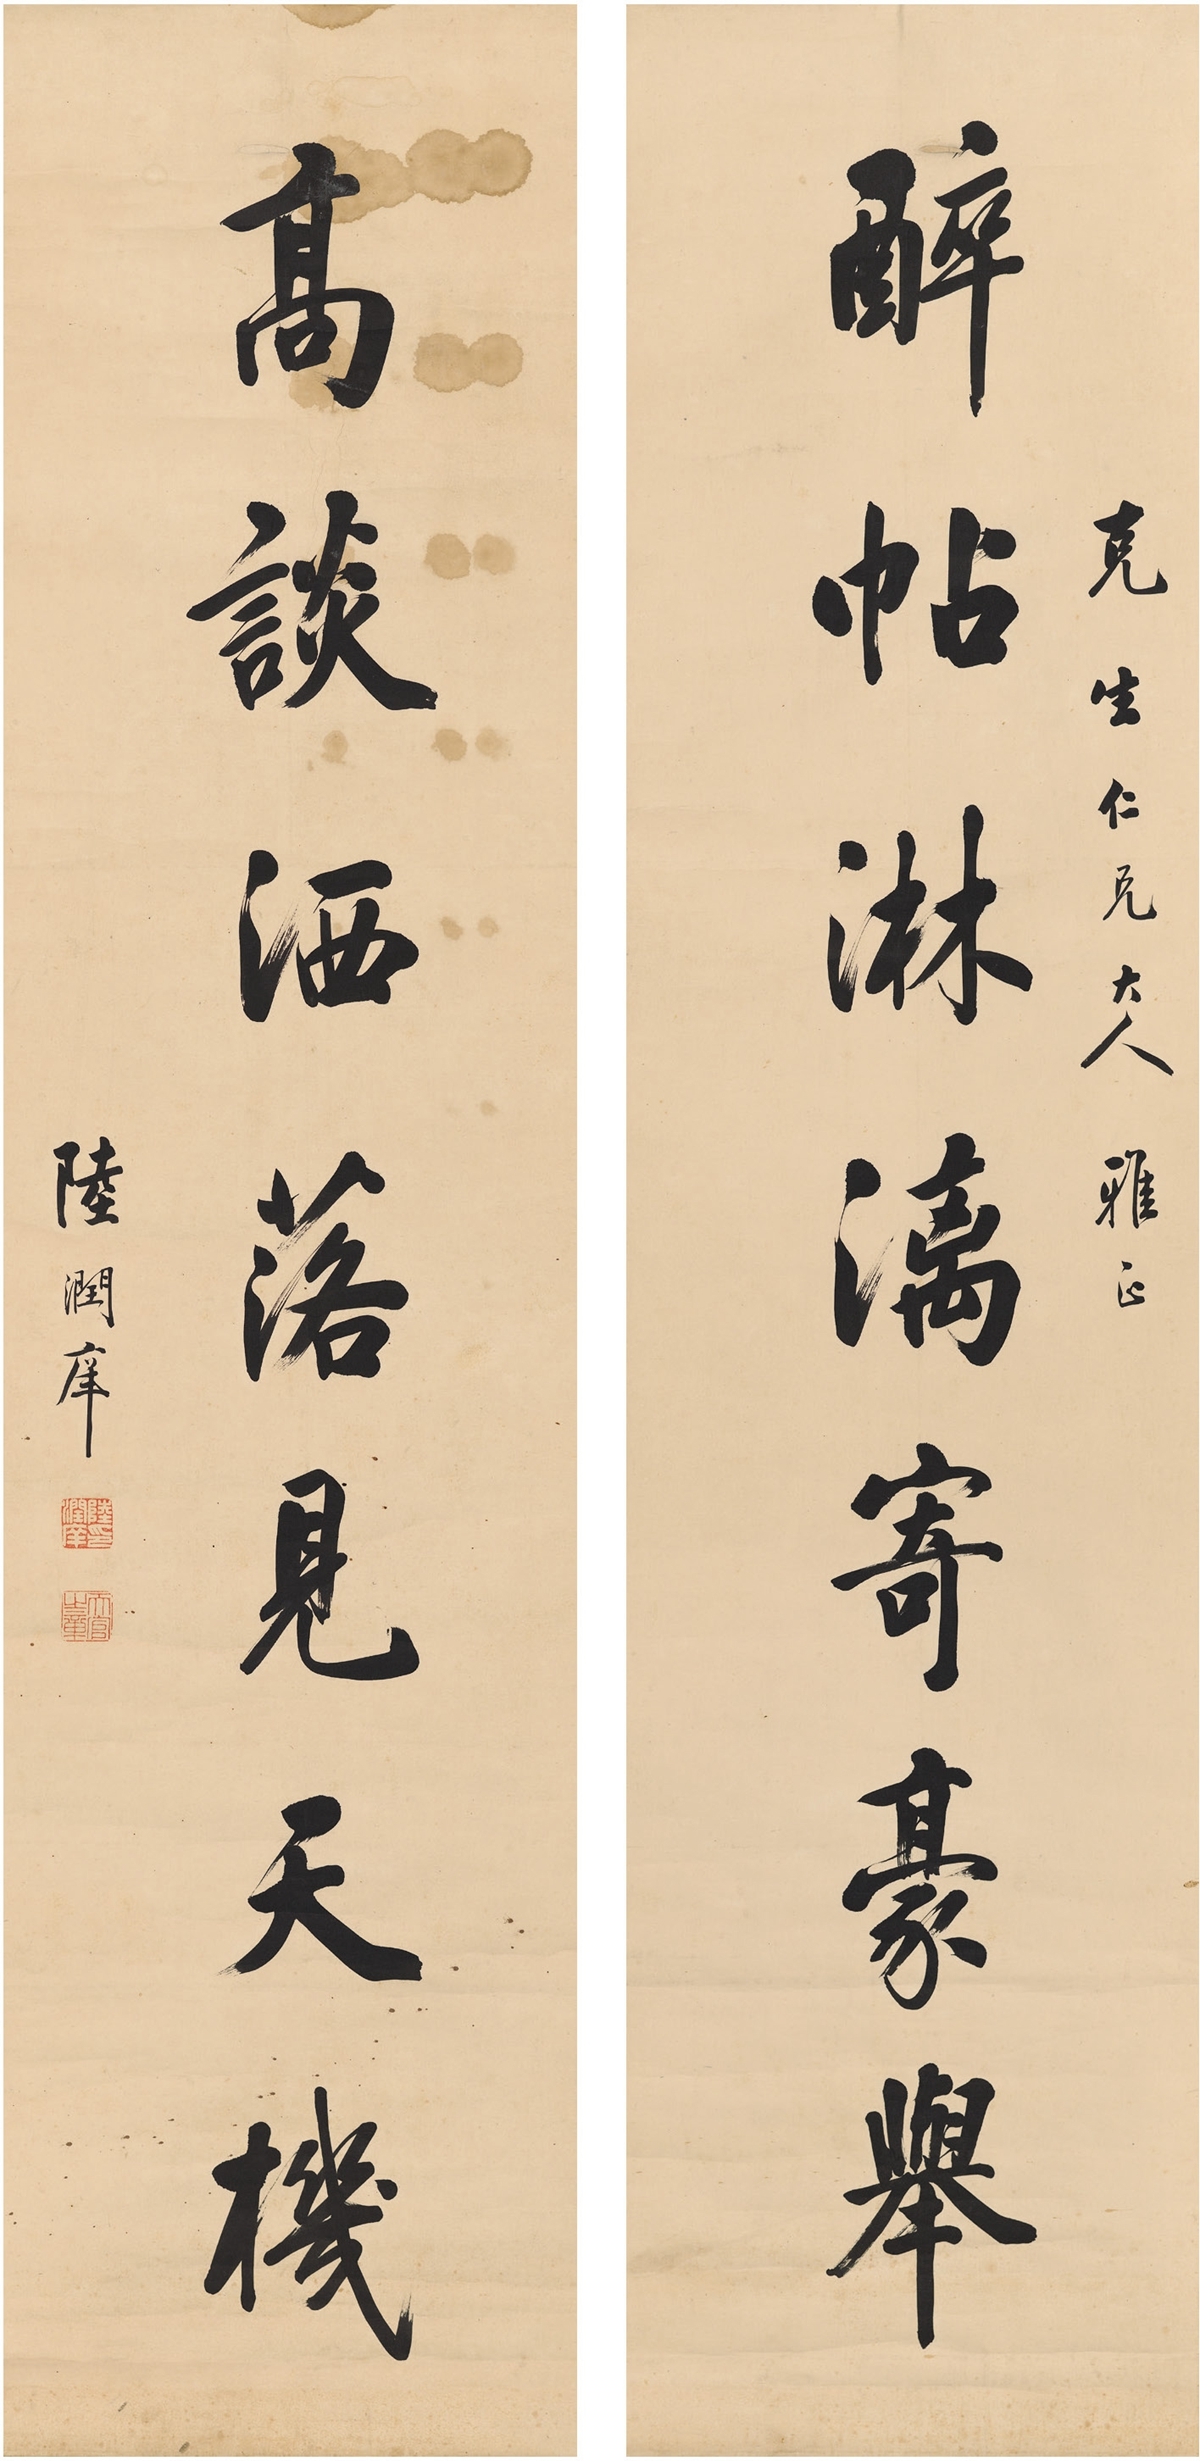 克生仁兄大人雅正
醉帖淋漓寄豪舉
高談洒落見天機
陸潤庠
陸潤庠印
天官冢宰